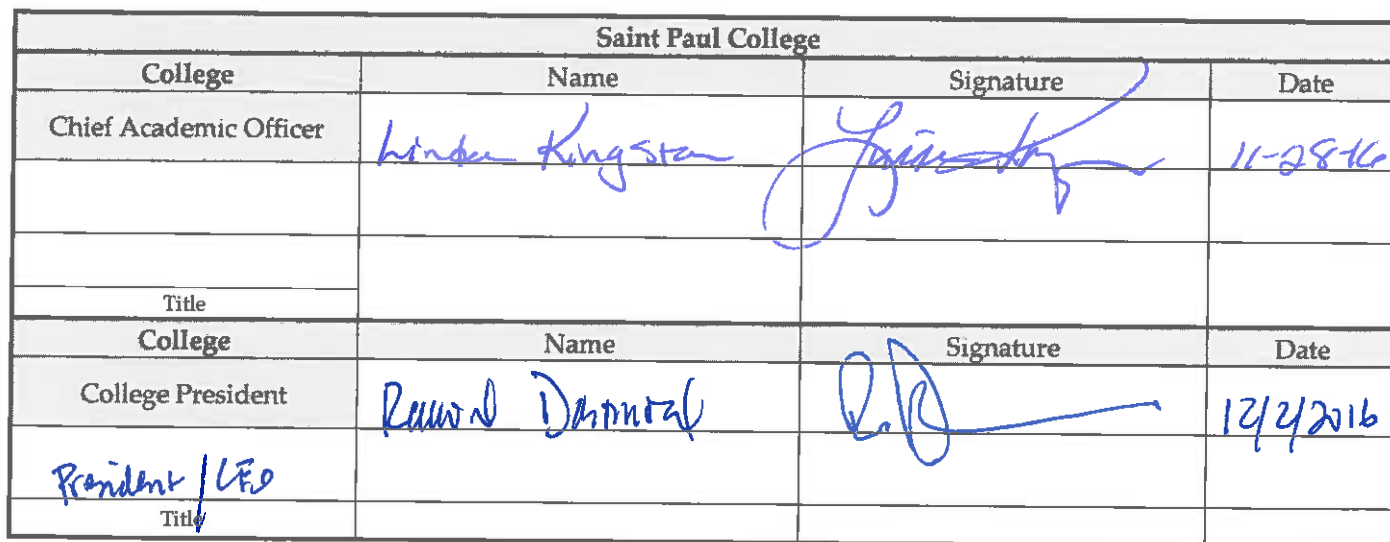 Saint Paul College
College Name Signature Date
Chief Academic Officer Linda Kingston 11-28-16
Title
College Name Signature Date
College President 12/2/2016
President/CEO
Title